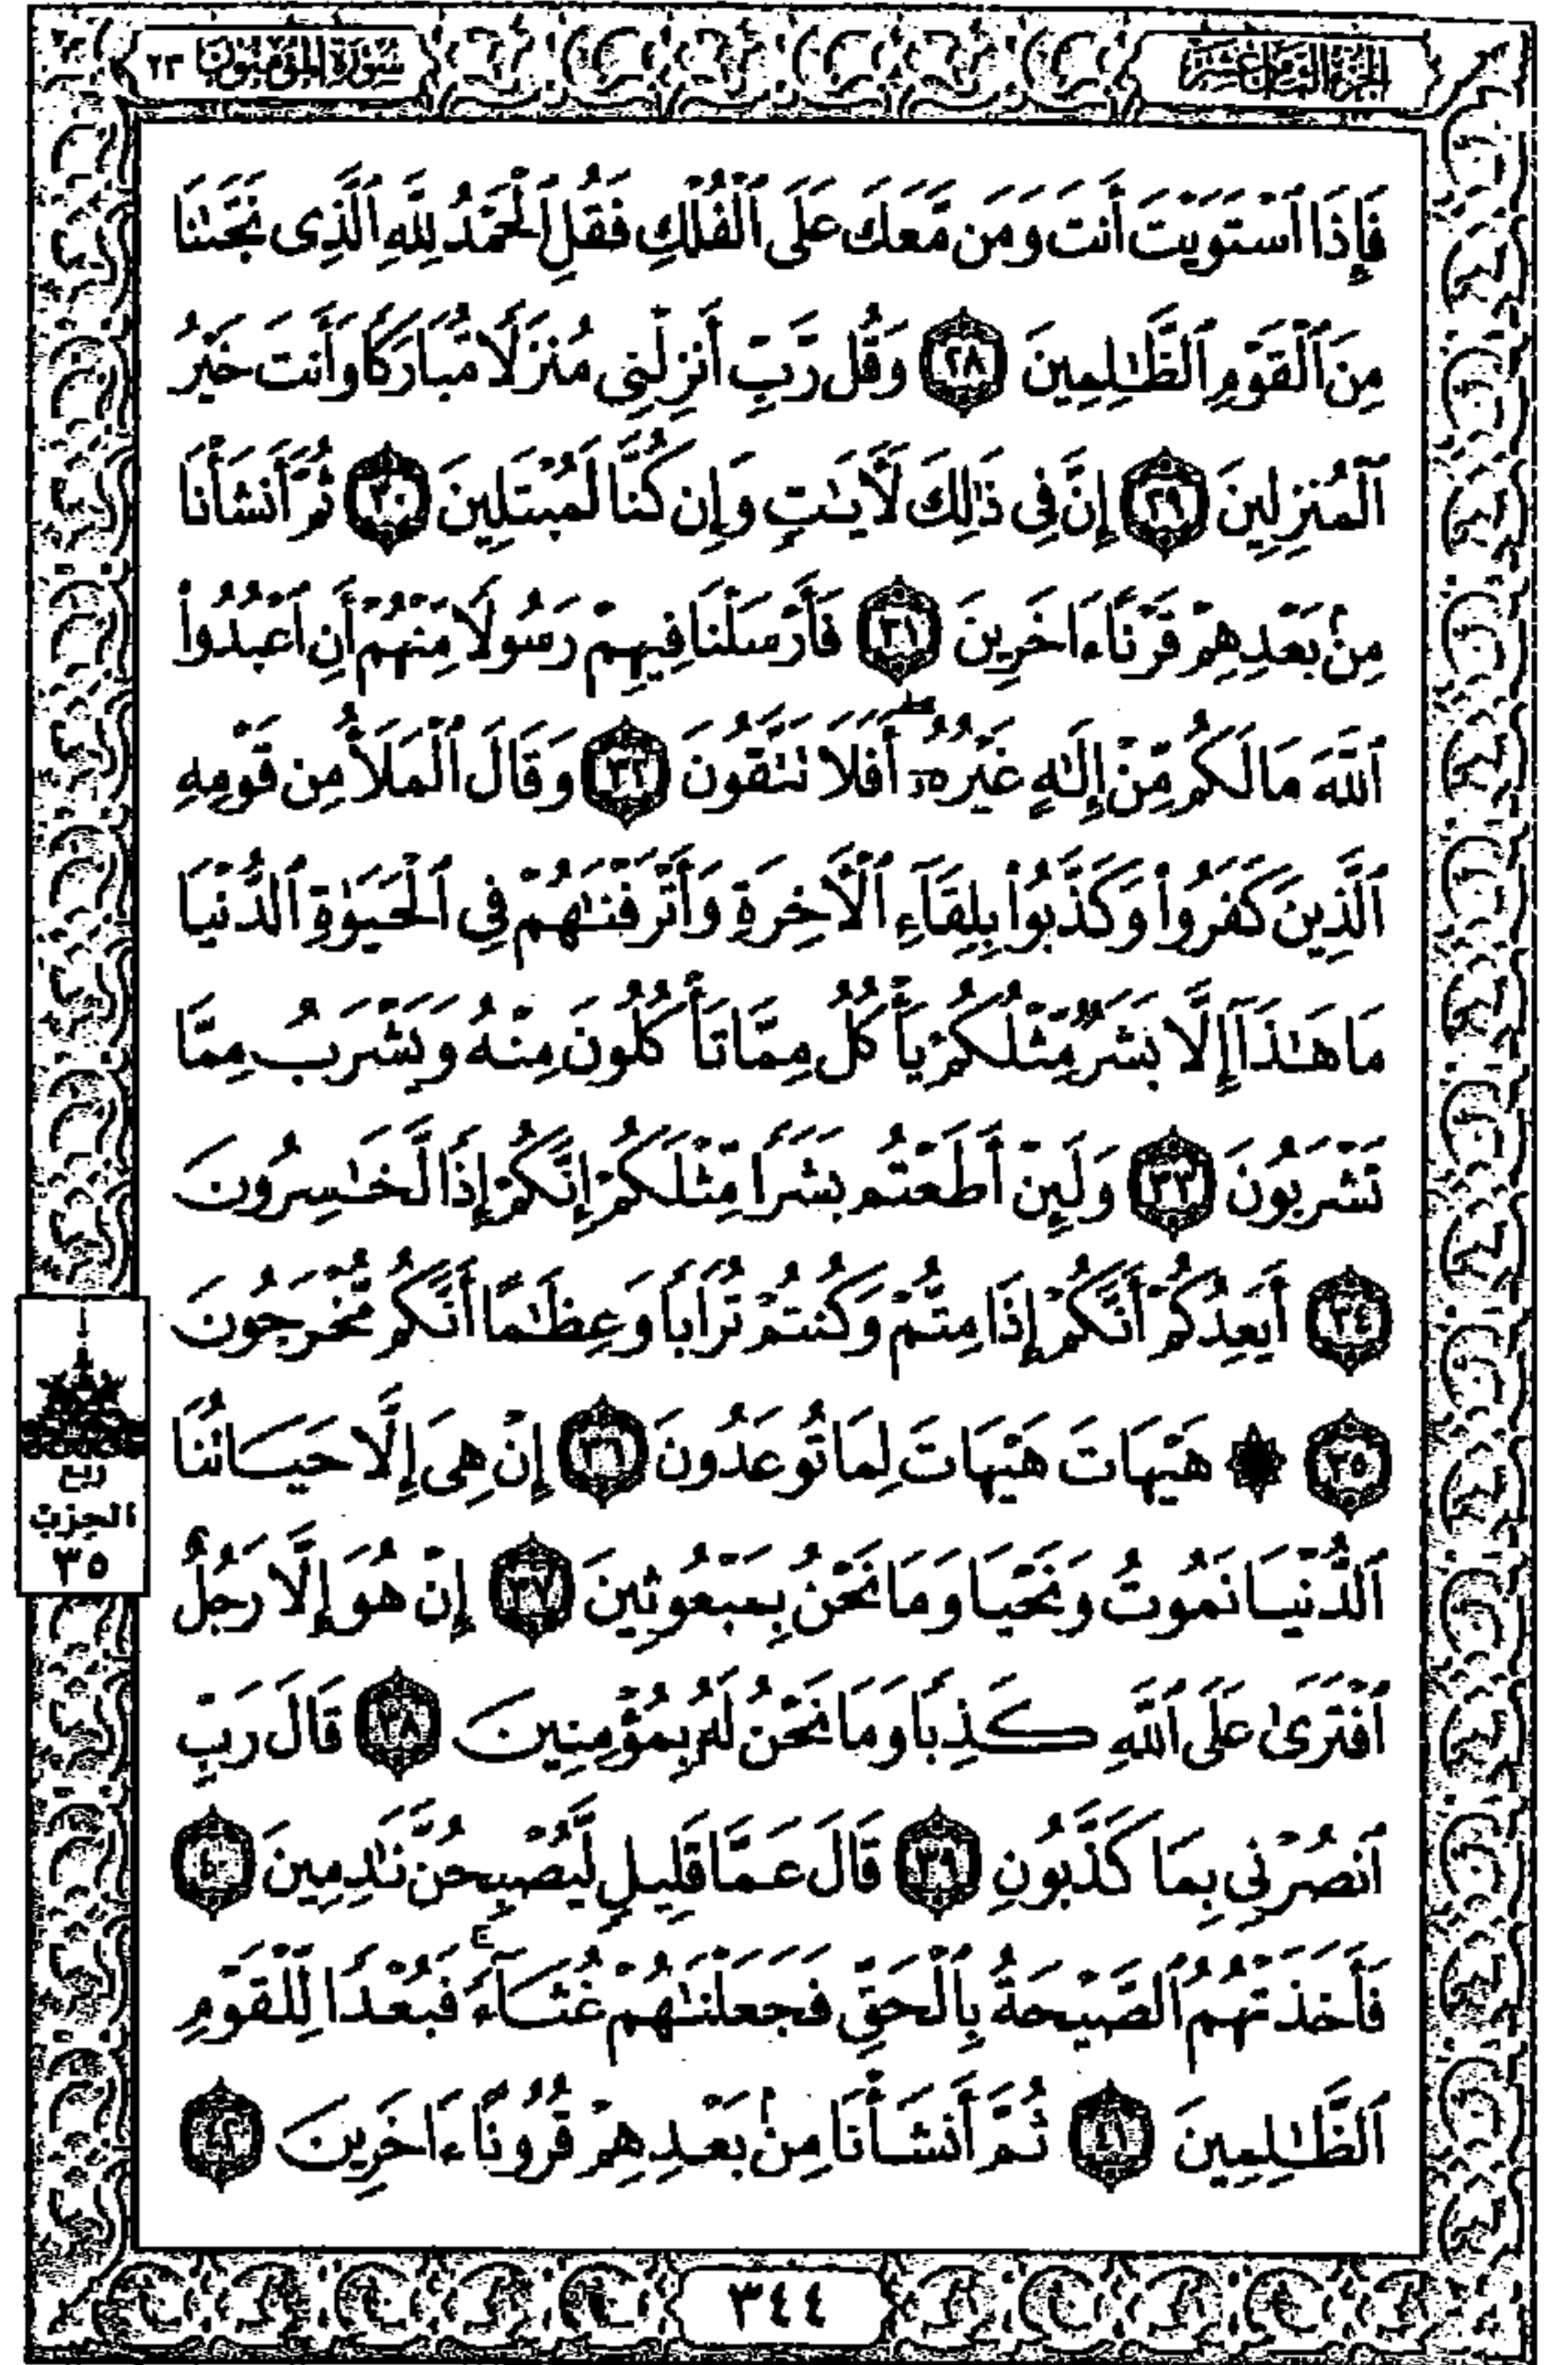 الجزء الثامن عشر
سورة المؤمنون ٢٣
فَإِذَا ٱسْتَوَيْتَ أَنتَ وَمَن مَّعَكَ عَلَى ٱلْفُلْكِ فَقُلِ ٱلْحَمْدُ لِلَّهِ ٱلَّذِى نَجَّىٰنَا
مِنَ ٱلْقَوْمِ ٱلظَّـٰلِمِينَ ٢٨ وَقُل رَّبِّ أَنزِلْنِى مُنزَلًا مُّبَارَكًا وَأَنتَ خَيْرُ
ٱلْمُنزِلِينَ ٢٩ إِنَّ فِى ذَٰلِكَ لَأَيَـٰتٍ وَإِن كُنَّا لَمُبْتَلِينَ ٣٠ ثُمَّ أَنشَأْنَا
مِنۢ بَعْدِهِمْ قَرْنًا ءَاخَرِينَ ٣١ فَأَرْسَلْنَا فِيهِمْ رَسُولًا مِّنْهُمْ أَنِ ٱعْبُدُوا۟
ٱللَّهَ مَا لَكُم مِّنْ إِلَـٰهٍ غَيْرُهُۥٓ ۖ أَفَلَا تَتَّقُونَ ٣٢ وَقَالَ ٱلْمَلَأُ مِن قَوْمِهِ
ٱلَّذِينَ كَفَرُوا۟ وَكَذَّبُوا۟ بِلِقَآءِ ٱلْأَخِرَةِ وَأَتْرَفْنَـٰهُمْ فِى ٱلْحَيَوٰةِ ٱلدُّنْيَا
مَا هَـٰذَآ إِلَّا بَشَرٌ مِّثْلُكُمْ يَأْكُلُ مِمَّا تَأْكُلُونَ مِنْهُ وَيَشْرَبُ مِمَّا
تَشْرَبُونَ ٣٣ وَلَئِنْ أَطَعْتُم بَشَرًا مِّثْلَكُمْ إِنَّكُمْ إِذًا لَّخَـٰسِرُونَ
٣٤ أَيَعِدُكُمْ أَنَّكُمْ إِذَا مِتُّمْ وَكُنتُمْ تُرَابًا وَعِظَـٰمًا أَنَّكُم مُّخْرَجُونَ
٣٥ ۞ هَيْهَاتَ هَيْهَاتَ لِمَا تُوعَدُونَ ٣٦ إِنْ هِىَ إِلَّا حَيَاتُنَا
ٱلدُّنْيَا نَمُوتُ وَنَحْيَا وَمَا نَحْنُ بِمَبْعُوثِينَ ٣٧ إِنْ هُوَ إِلَّا رَجُلٌ
ٱفْتَرَىٰ عَلَى ٱللَّهِ كَذِبًا وَمَا نَحْنُ لَهُۥ بِمُؤْمِنِينَ ٣٨ قَالَ رَبِّ
ٱنصُرْنِى بِمَا كَذَّبُونِ ٣٩ قَالَ عَمَّا قَلِيلٍ لَّيُصْبِحُنَّ نَـٰدِمِينَ ٤٠
فَأَخَذَتْهُمُ ٱلصَّيْحَةُ بِٱلْحَقِّ فَجَعَلْنَـٰهُمْ غُثَآءً ۚ فَبُعْدًا لِّلْقَوْمِ
ٱلظَّـٰلِمِينَ ٤١ ثُمَّ أَنشَأْنَا مِنۢ بَعْدِهِمْ قُرُونًا ءَاخَرِينَ ٤٢
ربع
الحزب
٣٥
٣٤٤